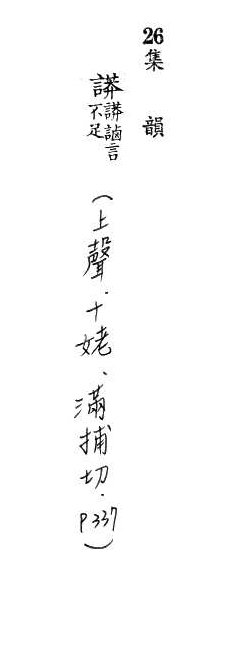 26集韻
言
不足
(上聲．十姥、滿捕切．P337)